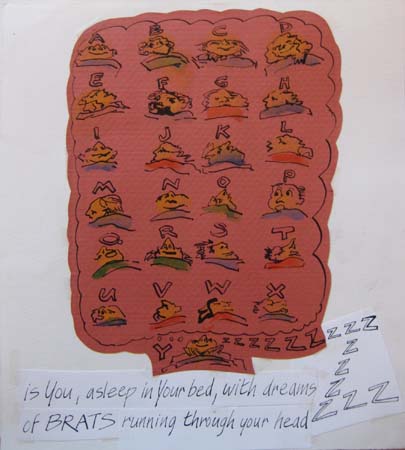 A B C D
E F G H
I J K L
M N O P
Q R S T
U V W X
Y zzzzzzzzZZZ
Z
Z
Z
ZZZZ
is You, asleep in Your bed, with dreams
of BRATS running through your head